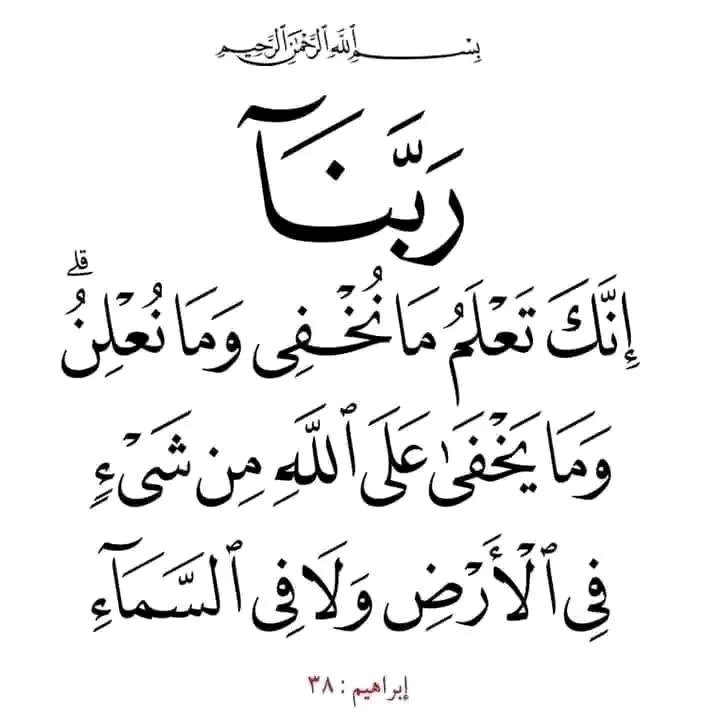 بِسْمِ ٱللَّهِ ٱلرَّحْمَٰنِ ٱلرَّحِيمِ
رَبَّنَآ
إِنَّكَ تَعْلَمُ مَا نُخْفِى وَمَا نُعْلِنُ ۗ
وَمَا يَخْفَىٰ عَلَى ٱللَّهِ مِن شَىْءٍ
فِى ٱلْأَرْضِ وَلَا فِى ٱلسَّمَآءِ
إبراهيم : ٣٨